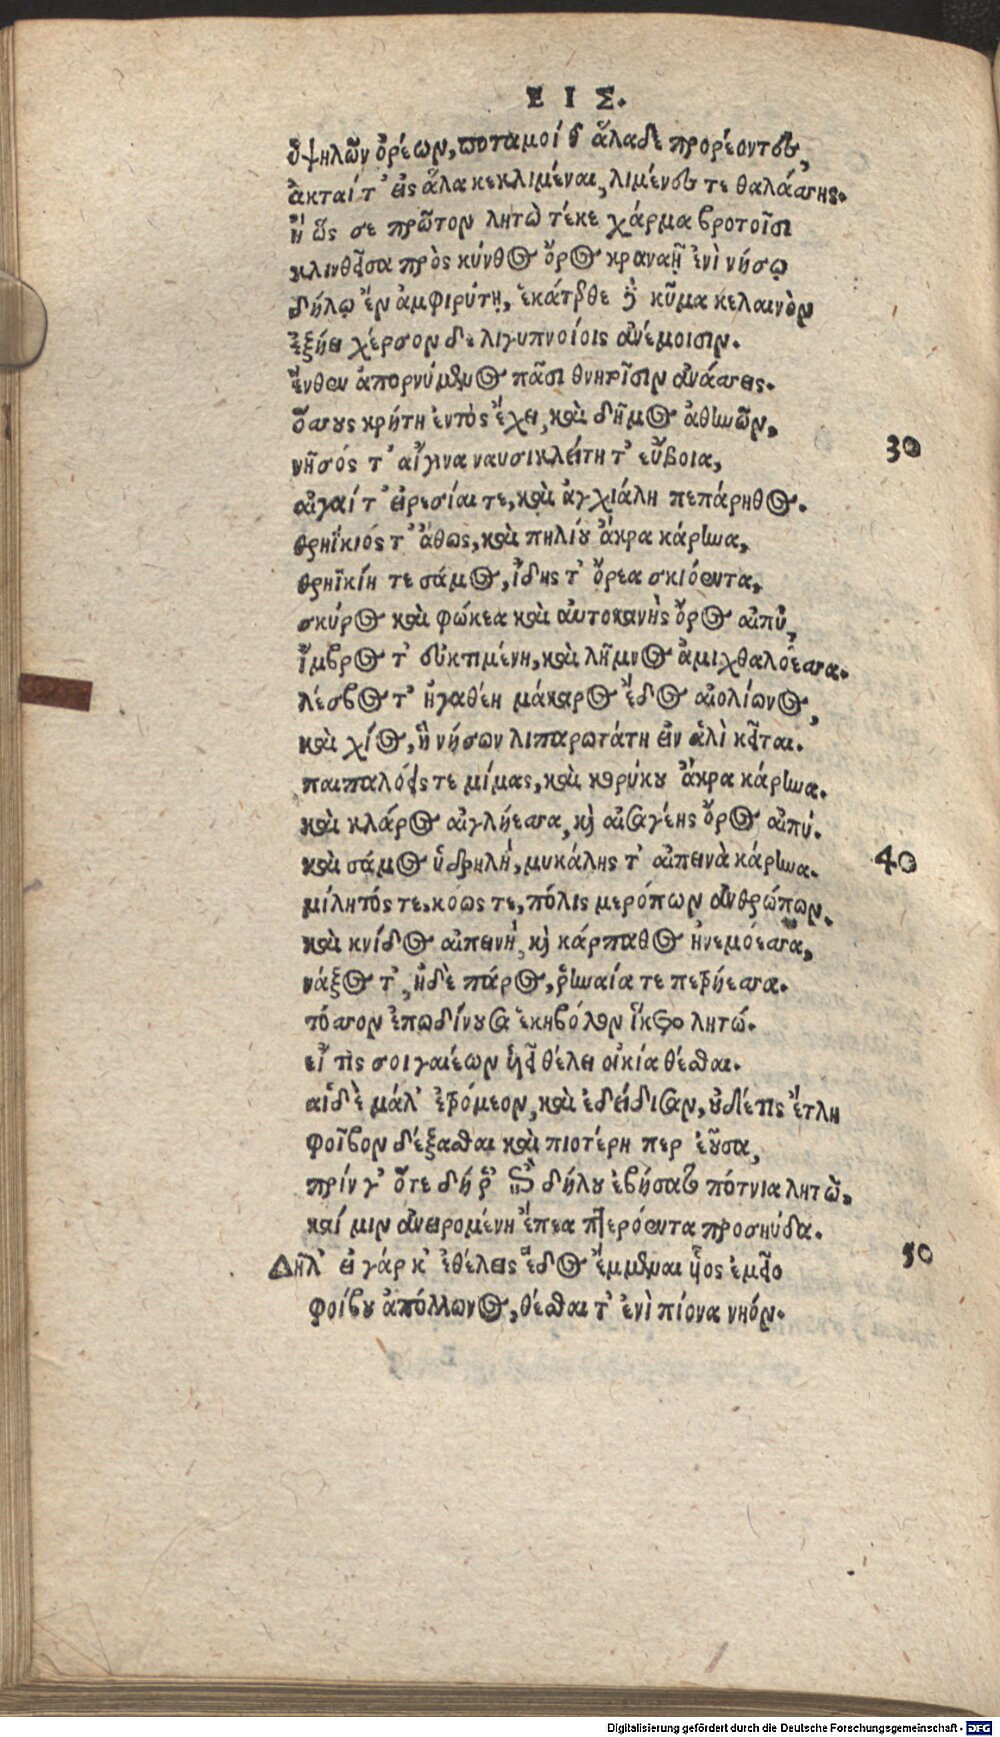 ΕΙΣ.
ὑψηλῶν ὀρέων, ποταμοί θ᾽ ἅλαδε προρέοντες,
ἀκταί τ᾽ εἰς ἅλα κεκλιμέναι, λιμένες τε θαλάσσης.
ἢ ὥς σε πρῶτον λητὼ τέκε χάρμα βροτοῖσι
κλινθεῖσα πρὸς κύνθος ὄρος κραναῇ ἐνὶ νήσῳ
δήλῳ ἐν ἀμφιρύτῃ, ἑκάτερθε δὲ κῦμα κελαινὸν
ἐξῄει χέρσον δε λιγυπνοίοις ἀνέμοισιν.
ἔνθεν ἀπορνύμενος πᾶσι θνητοῖσιν ἀνάσσεις.
ὅσσους κρήτη ἐντὸς ἔχει, καὶ δῆμος ἀθηνῶν,
νῆσός τ᾽ αἴγινα ναυσικλείτη τ᾽ εὔβοια,
αἰγαί τ᾽ εἰρεσίαι τε, καὶ ἀγχιάλη πεπάρηθος.
θρηΐκιός τ᾽ ἄθως, καὶ πηλίου ἄκρα κάρηνα,
θρηϊκίη τε σάμος, ἴδης τ᾽ ὄρεα σκιόεντα,
σκύρος καὶ φώκεα καὶ αὐτοκανὴς ὄρος αἰπὺ,
ἴμβρος τ᾽ εὐκτιμένη, καὶ λῆμνος ἀμιχθαλόεσσα.
λέσβος τ᾽ ἠγαθέη μάκαρος ἕδος αἰολίωνος,
καὶ χίος, ἣ νήσων λιπαρωτάτη εἰν ἁλὶ κεῖται.
παιπαλόεις τε μίμας, καὶ κωρύκου ἄκρα κάρηνα.
καὶ κλάρος αἰγλήεσσα, καὶ αἰσαγέης ὄρος αἰπύ.
καὶ σάμος ὑδρηλὴ, μυκάλης τ᾽ αἰπεινὰ κάρηνα.
μίλητός τε, κόως τε, πόλις μερόπων ἀνθρώπων.
καὶ κνίδος αἰπεινὴ, καὶ κάρπαθος ἠνεμόεσσα,
νάξος τ᾽, ἠδὲ πάρος, ῥηναία τε πετρήεσσα.
τόσσον ἐπωδίνουσα ἑκηβόλον ἵκετο λητώ.
εἴ τίς σοι γαιέων υἱεῖ θέλει οἰκία θέσθαι.
αἱ δὲ μάλ᾽ ἐτρόμεον, καὶ ἐδείδισαν, οὐδέ τις ἔτλη
φοῖβον δέξασθαι καὶ πιοτέρη περ ἐοῦσα,
πρίν γ᾽ ὅτε δή ῥ᾽ ἐπὶ δήλου ἐβήσατο πότνια λητὼ.
καί μιν ἀνειρομένη ἔπεα πτερόεντα προσηύδα.
Δῆλ᾽ εἰ γάρ κ᾽ ἐθέλεις ἕδος ἔμμεναι υἷος ἐμεῖο
φοίβου ἀπόλλωνος, θέσθαι τ᾽ ἐνὶ πίονα νηόν.
30
40
50
Digitalisierung gefördert durch die Deutsche Forschungsgemeinschaft - DFG